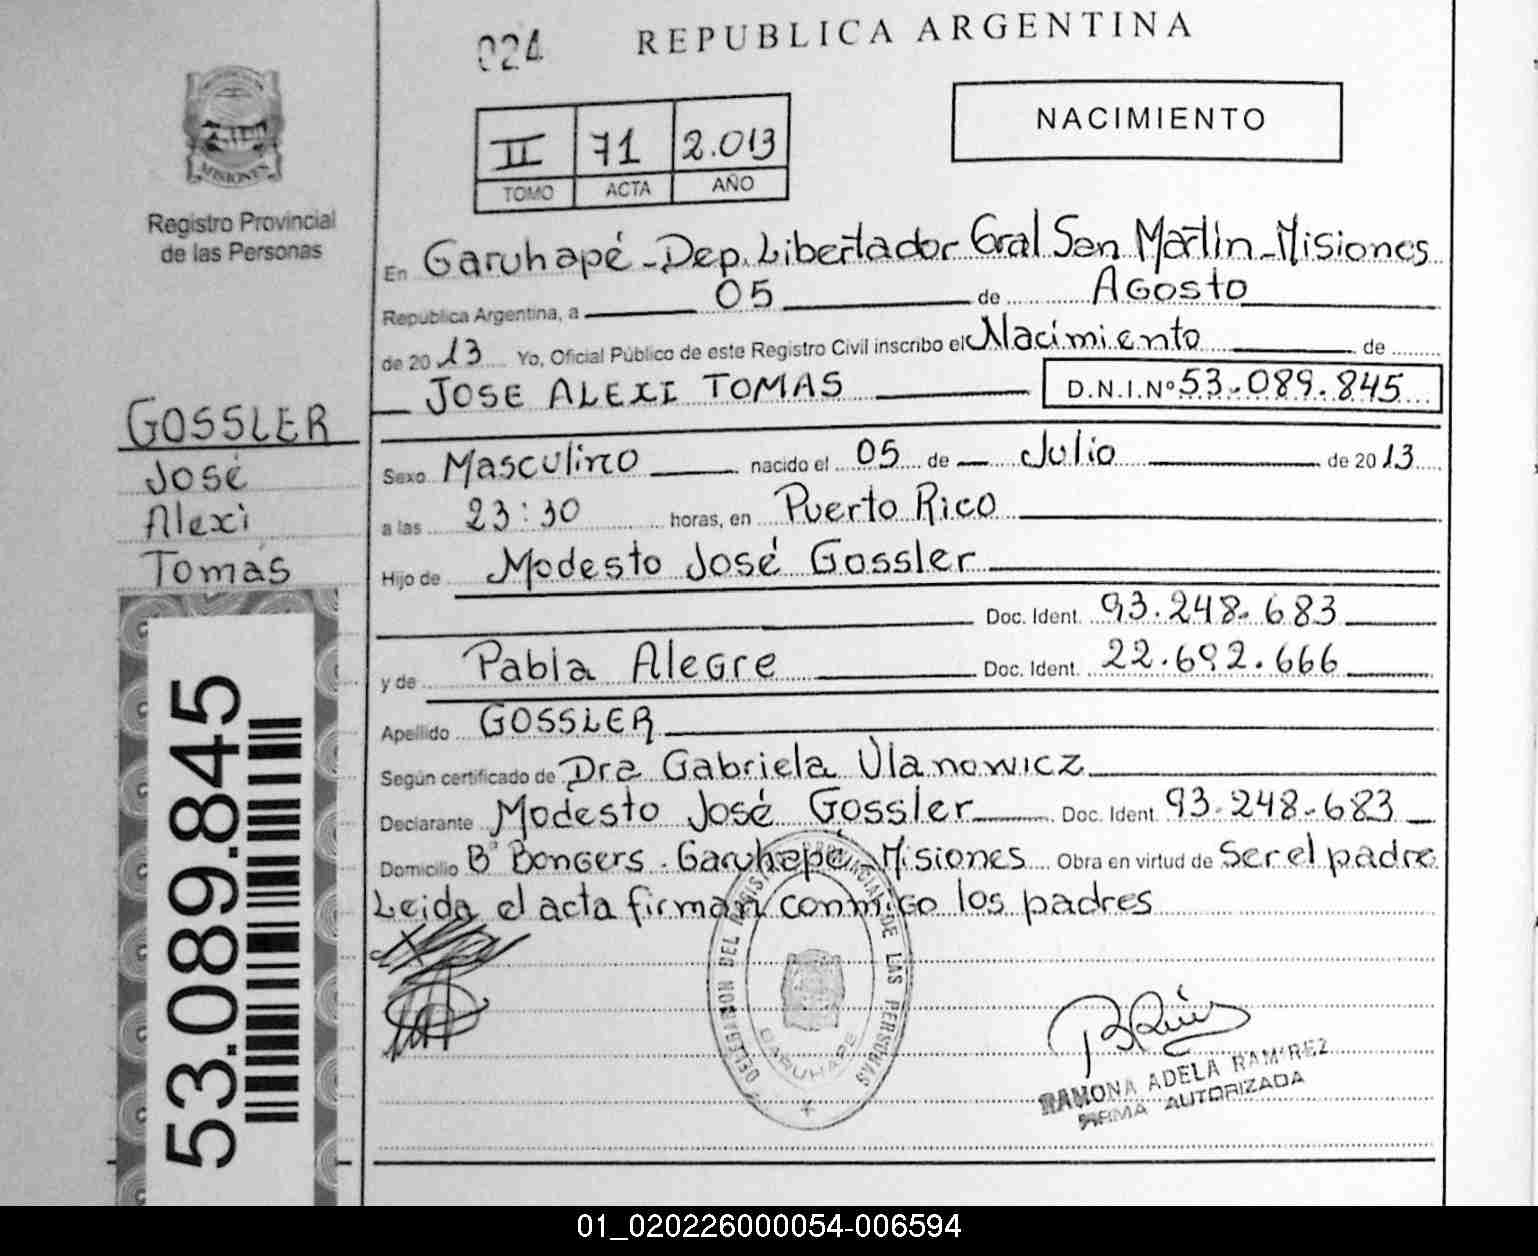 024
REPUBLICA ARGENTINA
NACIMIENTO
II 71 2.013
TOMO ACTA AÑO
MISIONES
Registro Provincial
de las Personas
En Garuhapé - Dep. Libertador Gral San Martín - Misiones
Republica Argentina, a 05 de Agosto
de 2013 Yo, Oficial Público de este Registro Civil inscribo el Nacimiento de
JOSE ALEXI TOMAS D.N.I.Nº 53.089.845
GOSSLER
José
Alexi
Tomás
Sexo Masculino nacido el 05 de Julio de 2013
a las 23:30 horas, en Puerto Rico
Hijo de Modesto José Gossler
Doc. Ident. 93.248.683
y de Pabla Alegre Doc. Ident. 22.692.666
Apellido GOSSLER
Según certificado de Dra Gabriela Ulanowicz
Declarante Modesto José Gossler Doc. Ident. 93.248.683
Domicilio Bº Bongers - Garuhapé - Misiones Obra en virtud de Ser el padre
Leida el acta firman conmigo los padres
53.089.845
DELEGACION DEL REGISTRO PROVINCIAL DE LAS PERSONAS
GARUHAPE
RAMONA ADELA RAMIREZ
FIRMA AUTORIZADA
01_020226000054-006594